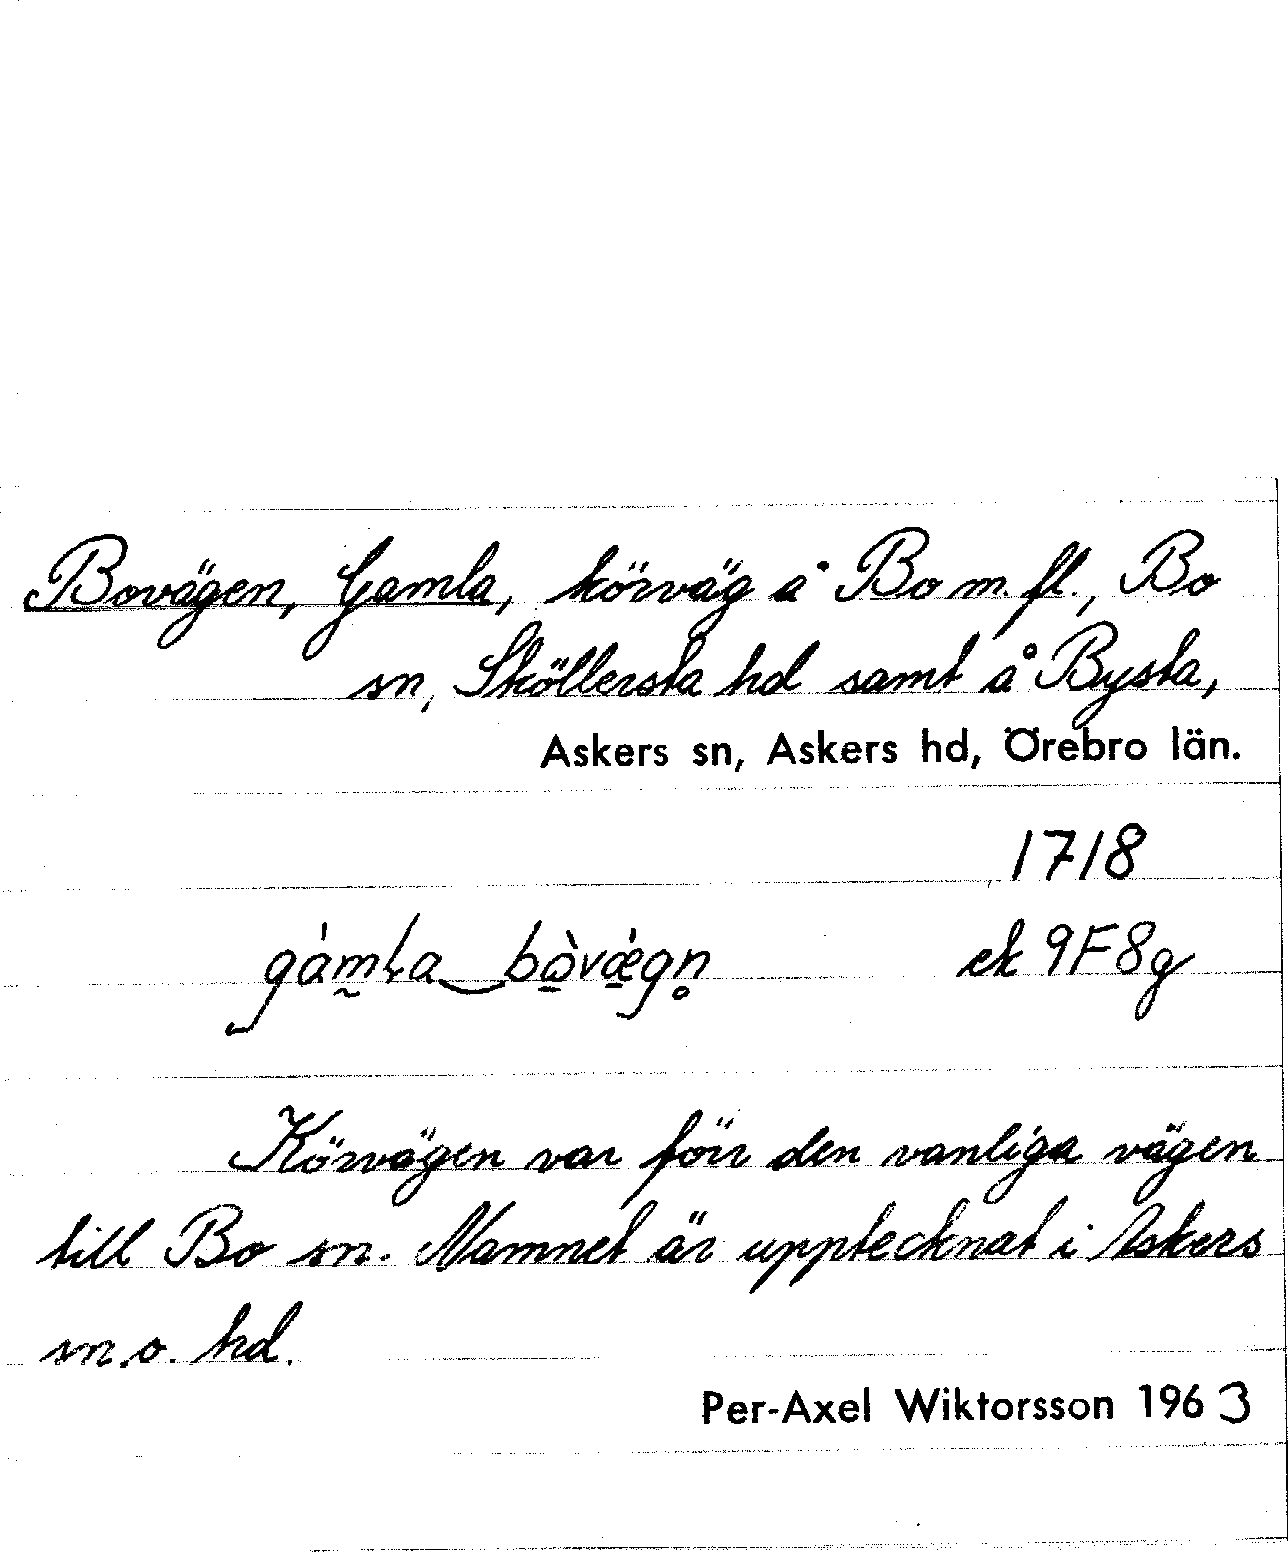 Bovägen, Gamla, körväg å Bo m. fl., Bo
sn, Sköllersta hd samt å Bysta,
Askers sn, Askers hd, Örebro län.
1718
gàmla bòvægn̥ ek 9F8g
Körvägen var förr den vanliga vägen
till Bo sn. Namnet är upptecknat i Askers
sn o. hd.
Per-Axel Wiktorsson 1963